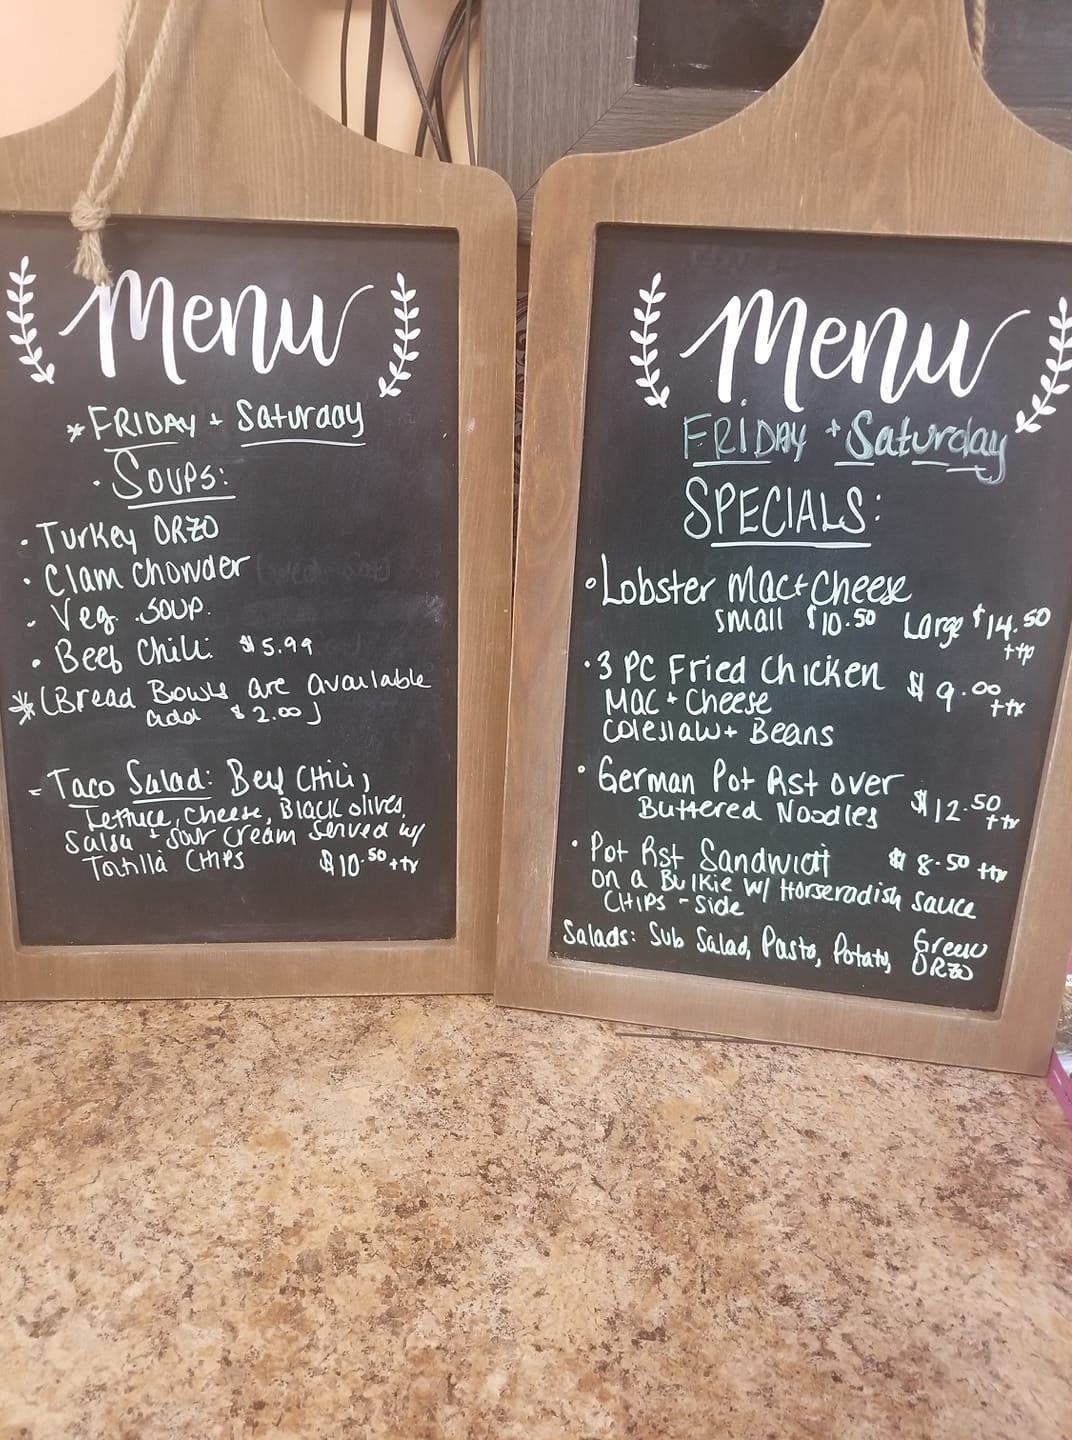 Menu
*FRIDAY + Saturday
· SOUPS:
· Turkey ORZO
· Clam Chowder
· Veg. SOUP.
· Beef Chili: $5.99
* (Bread Bowls are available
add $2.00)
- Taco Salad: Beef Chili,
Lettuce, Cheese, Black olives,
Salsa + Sour Cream Served w/
Tortilla CHIPS $10.50 + tx
Menu
FRIDAY + Saturday
SPECIALS:
· Lobster Mac + Cheese
Small $10.50 Large $14.50
+ tx
· 3 PC Fried Chicken $9.00
+ tx
MAC + Cheese
Coleslaw + Beans
· German Pot Rst over
Buttered Noodles $12.50
+ tx
· Pot Rst Sandwich $8.50 + tx
On a Bulkie w/ Horseradish sauce
CHIPS - Side
Salads: Sub Salad, Pasta, Potato, Green
ORZO